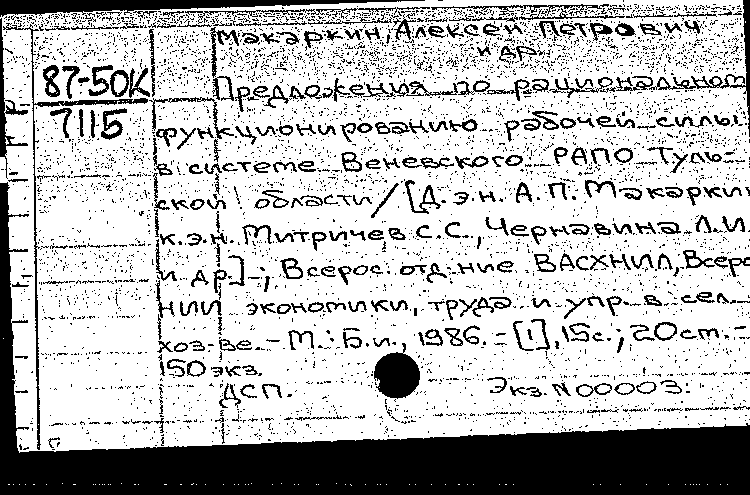 Макаркин, Алексей Петрович
и др.
87-50К
7115
Предложения по рационально
функционированию рабочей силы
в системе Веневского РАПО Туль-
ской области / [Д.э.н. А.П. Макаркин
к.э.н. Митричев С.С., Чернавина Л.И.
и др.]; Всерос. отд-ние ВАСХНИЛ, Всеро
НИИ экономики, труда и упр. в сел.
хоз-ве. - М.: Б.и., 1986. - [1], 15с.; 20см. -
150 экз.
ДСП. Экз. N 00003.